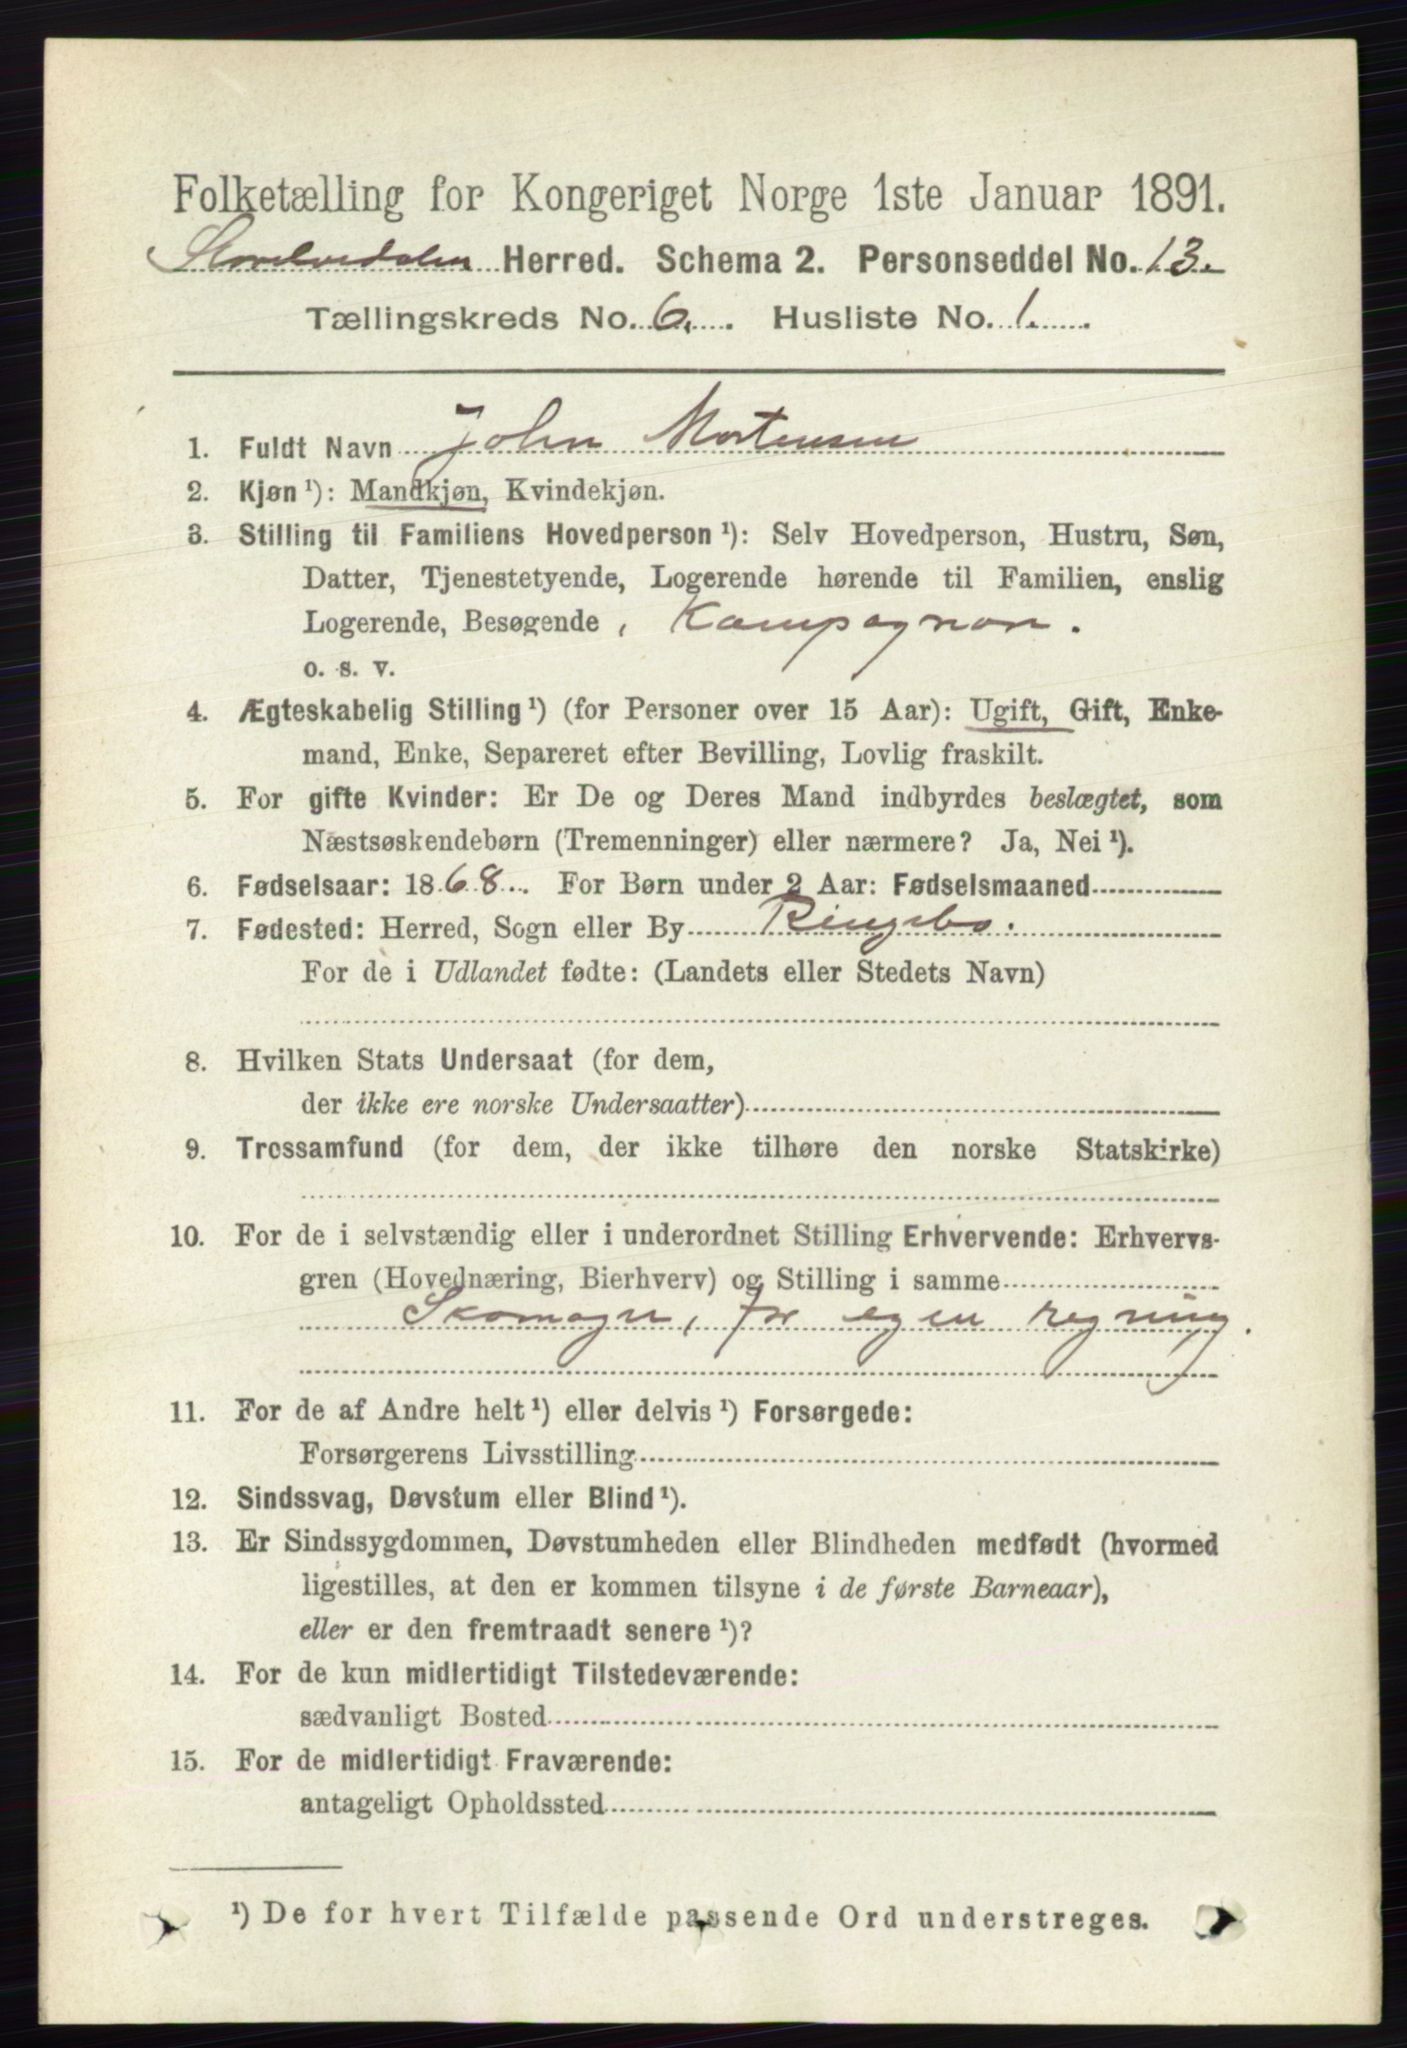 Folketælling for Kongeriget Norge 1ste Januar 1891.
Storelvedalen Herred. Schema 2. Personseddel No. 13.
Tællingskreds No. 6. Husliste No. 1.
1. Fuldt Navn John Mortensen
2. Kjøn ¹): Mandkjøn, Kvindekjøn.
3. Stilling til Familiens Hovedperson ¹): Selv Hovedperson, Hustru, Søn,
Datter, Tjenestetyende, Logerende hørende til Familien, enslig
Logerende, Besøgende, Kompagnon.
o. s. v.
4. Ægteskabelig Stilling ¹) (for Personer over 15 Aar): Ugift, Gift, Enke-
mand, Enke, Separeret efter Bevilling, Lovlig fraskilt.
5. For gifte Kvinder: Er De og Deres Mand indbyrdes beslægtet, som
Næstsøskendebørn (Tremenninger) eller nærmere? Ja, Nei ¹).
6. Fødselsaar: 1868. For Børn under 2 Aar: Fødselsmaaned
7. Fødested: Herred, Sogn eller By Ringebo.
For de i Udlandet fødte: (Landets eller Stedets Navn)
8. Hvilken Stats Undersaat (for dem,
der ikke ere norske Undersaatter)
9. Trossamfund (for dem, der ikke tilhøre den norske Statskirke)
10. For de i selvstændig eller i underordnet Stilling Erhvervende: Erhvervs-
gren (Hovednæring, Bierhverv) og Stilling i samme
Skomager, for egen regning.
11. For de af Andre helt ¹) eller delvis ¹) Forsørgede:
Forsørgerens Livsstilling
12. Sindssvag, Døvstum eller Blind ¹).
13. Er Sindssygdommen, Døvstumheden eller Blindheden medfødt (hvormed
ligestilles, at den er kommen tilsyne i de første Barneaar),
eller er den fremtraadt senere ¹)?
14. For de kun midlertidigt Tilstedeværende:
sædvanligt Bosted
15. For de midlertidigt Fraværende:
antageligt Opholdssted
¹) De for hvert Tilfælde passende Ord understreges.